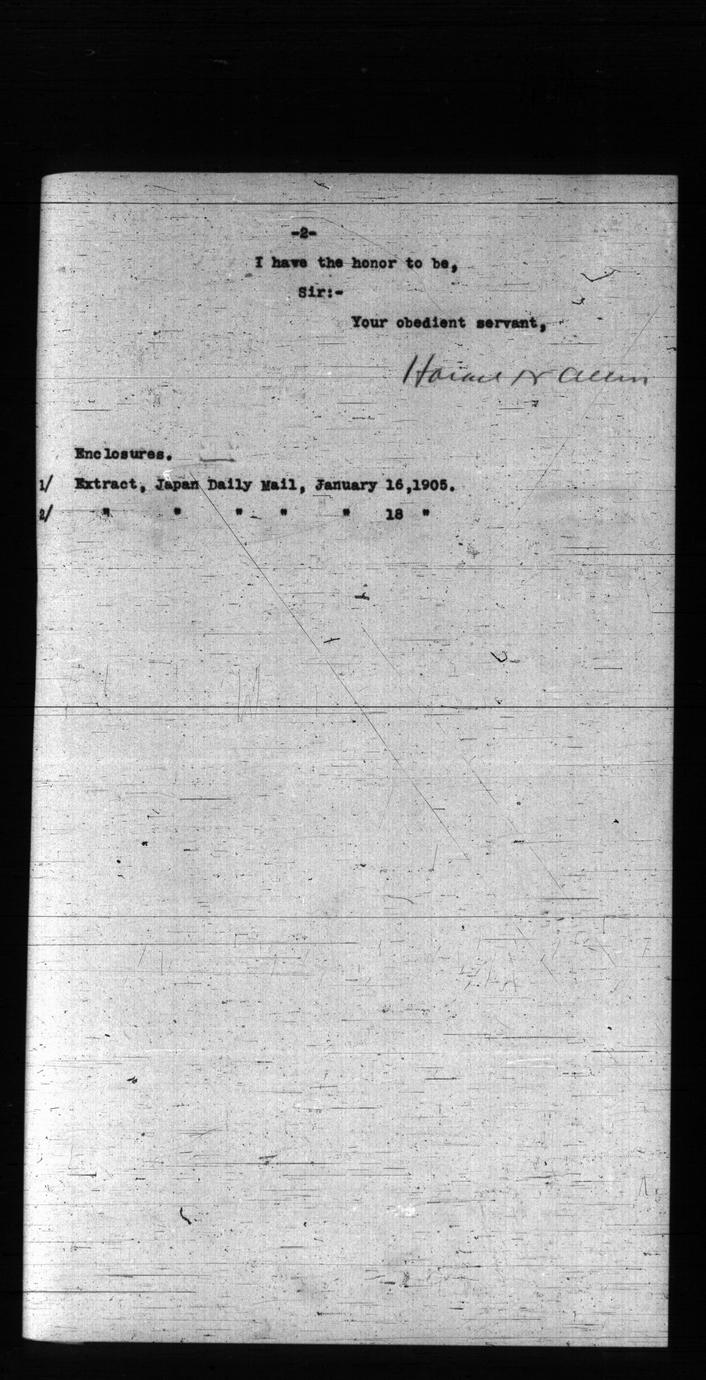 -2-
I have the honor to be,
Sir:-
Your obedient servant,
Horace N Allen
Enclosures.
1/ Extract, Japan Daily Mail, January 16,1905.
2/ " " " " " 18 "